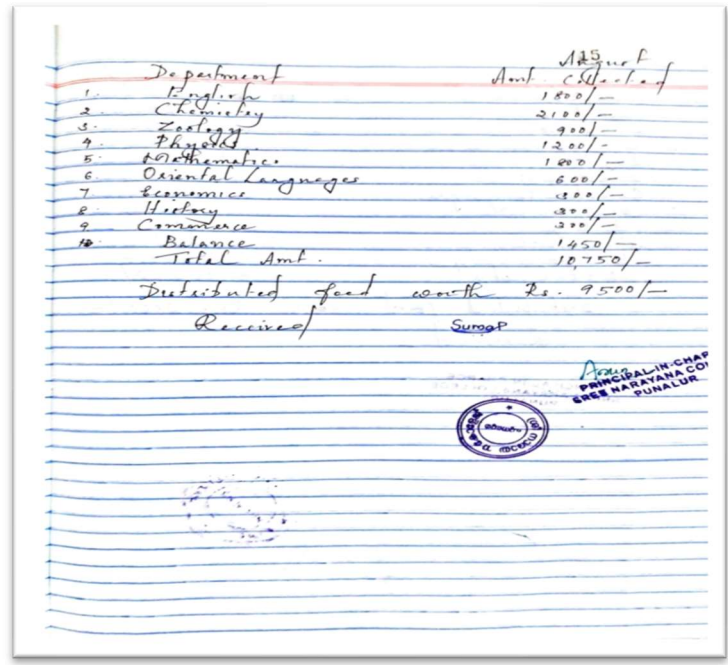 August 15
Department Amt. Collected
1. English 1800/-
2. Chemistry 2100/-
3. Zoology 900/-
4. Physics 1200/-
5. Mathematics 1800/-
6. Oriental Languages 600/-
7 Economics 300/-
8 History 300/-
9 Commerce 300/-
10. Balance 1450/-
Total Amt. 10,750/-
Distributed food worth Rs. 9500/-
Received
PRINCIPAL-IN-CHAR
SREE NARAYANA CO
PUNALUR